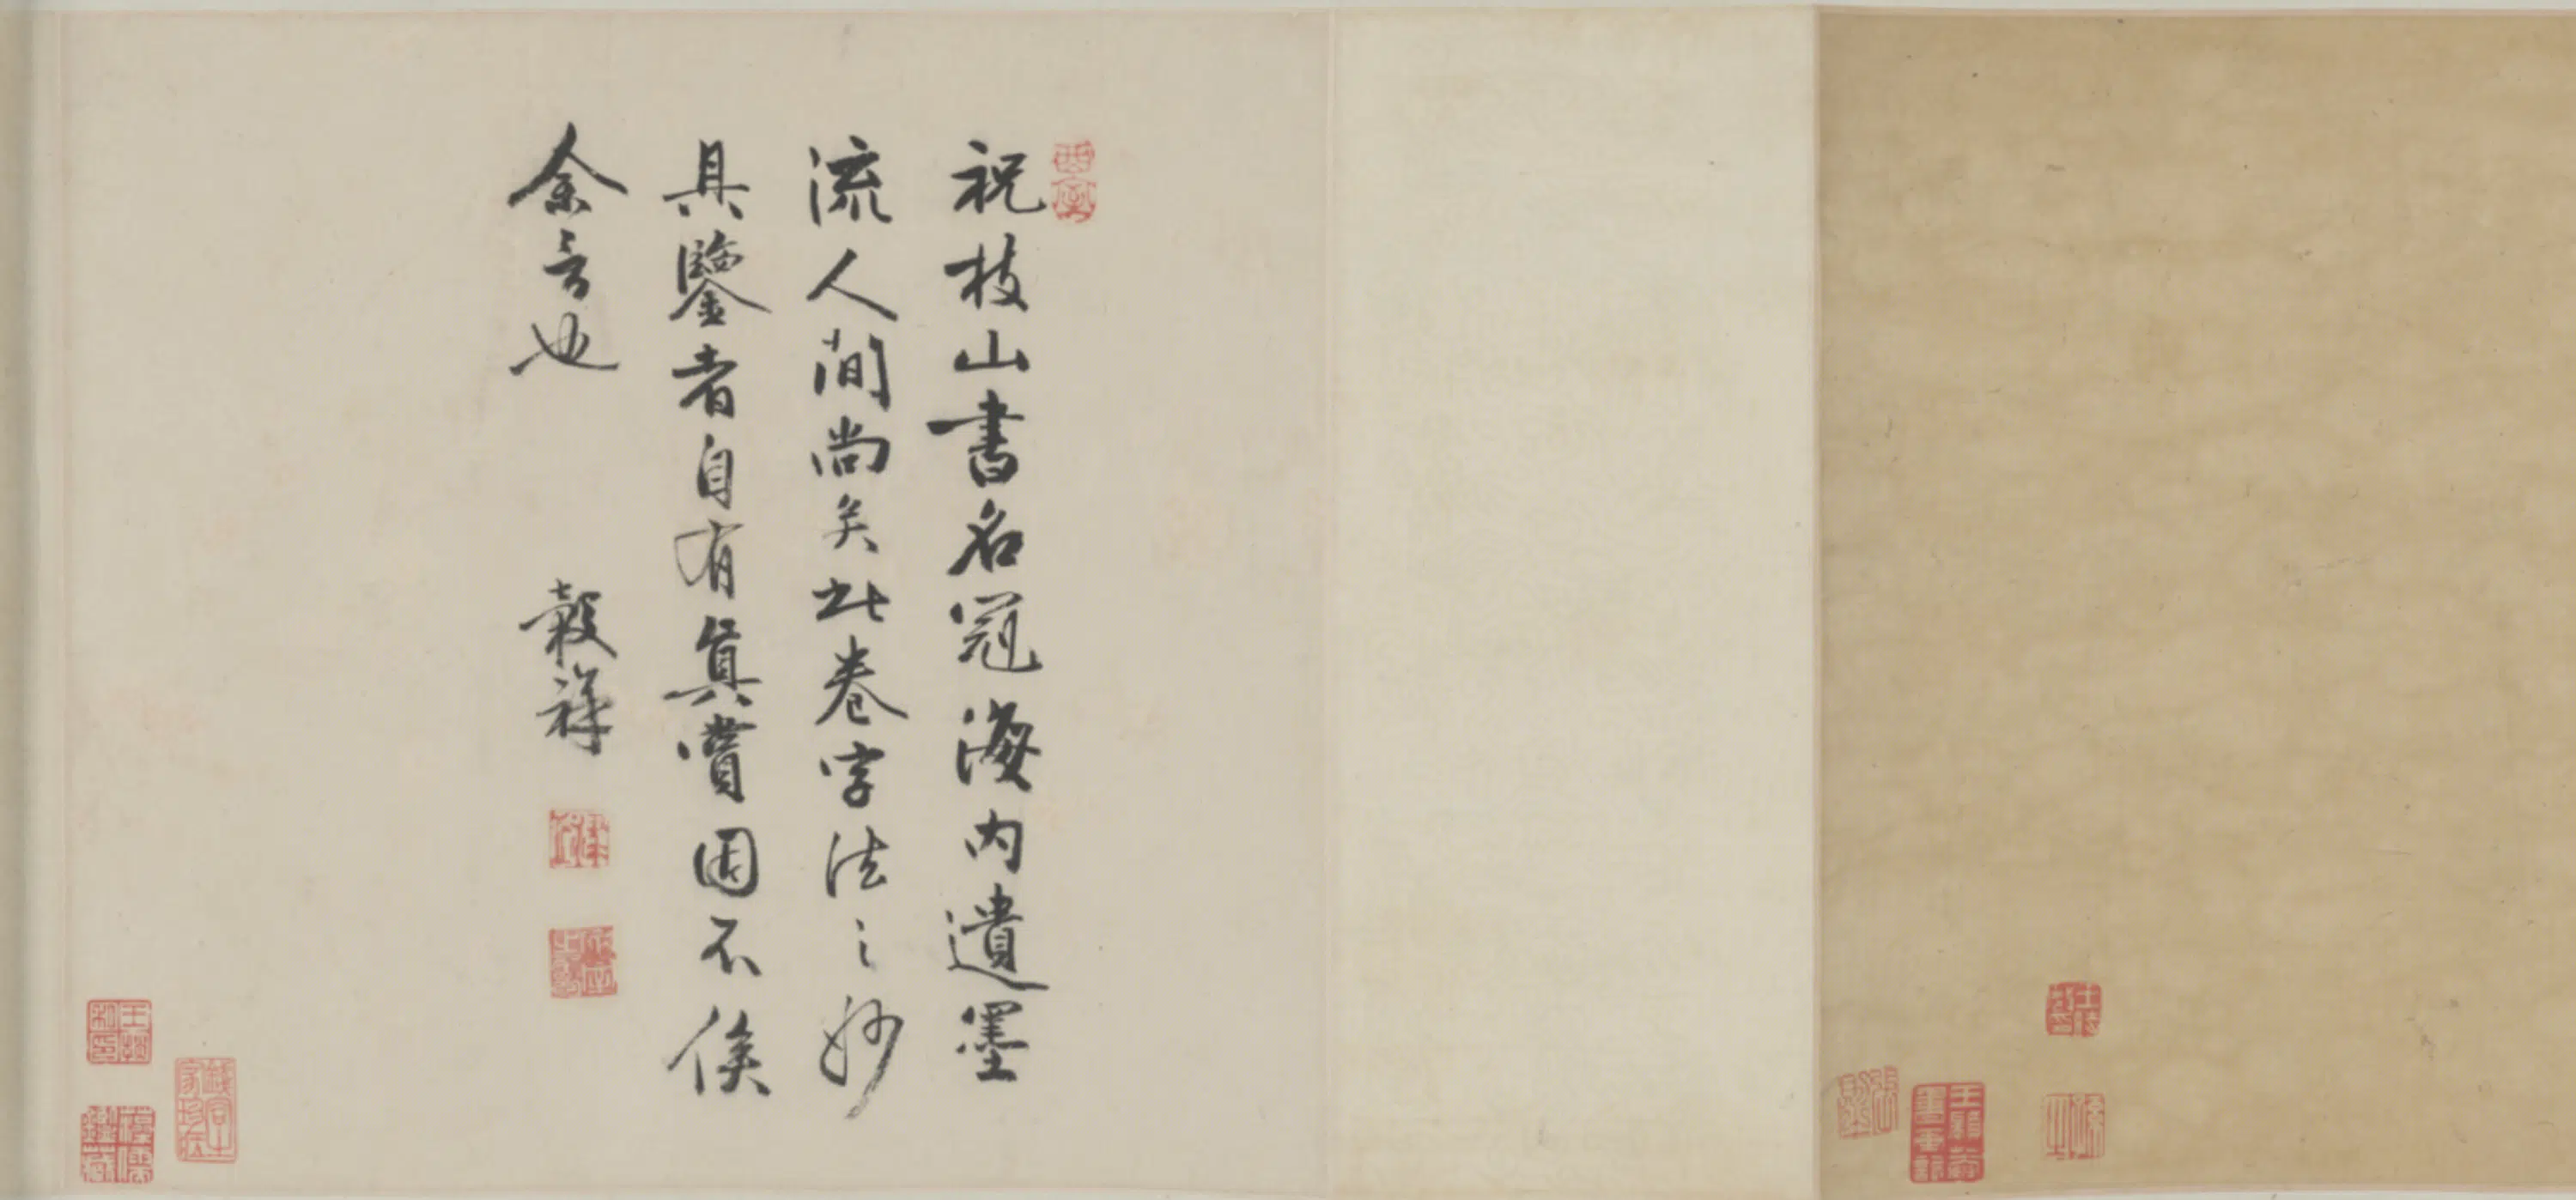 祝枝山書名冠海內遺墨
流人間尚矣此卷字法之妙
具鑒者自有真賞固不俟
余言也 穀祥